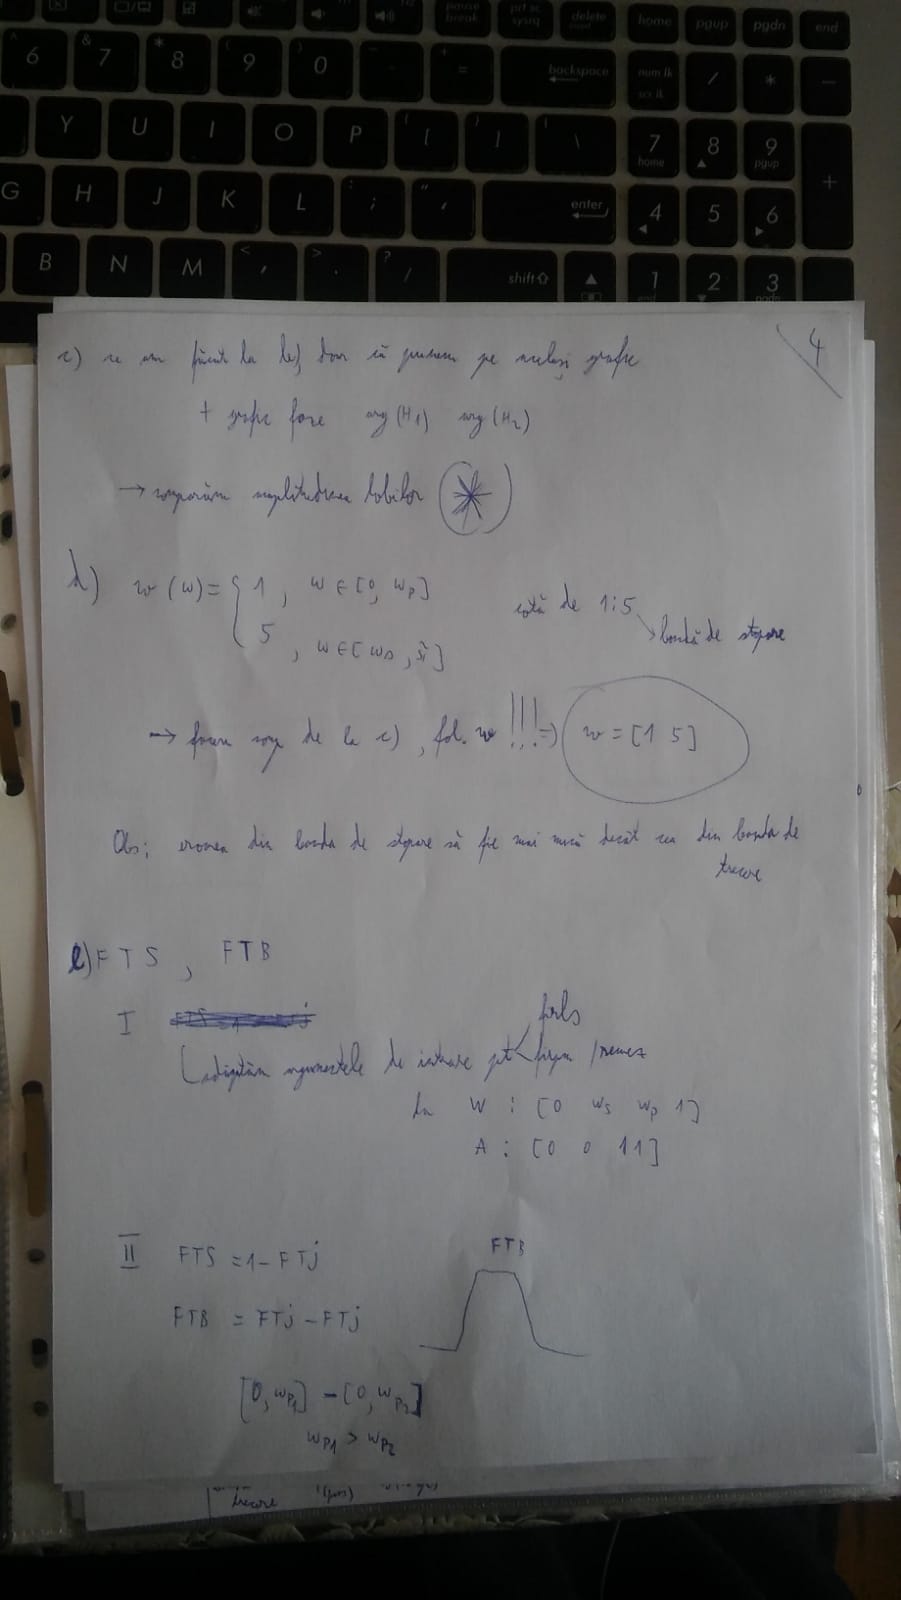 pause break
prt sc sysrq
delete
home
pgup
pgdn
end
6 7 8 9 0 - = backspace num lk scr lk / * -
Y U I O P [ ] \ 7 home 8 9 pgup +
G H J K L ; ' enter 4 5 6
B N M , . / shift 1 end 2 3 pgdn
4
c) ce am făcut la b), doar că punem pe același grafic
+ grafic faze arg(H1) arg(H2)
→ comparăm amplitudinea lobilor (*)
d) w(w) = { 1, w ∈ [0, wp]
5, w ∈ [ws, π]
cotă de 1:5
→ bandă de stopare
→ facem de la c), fol. w !!! => w = [1 5]
Obs: eroarea din banda de stopare să fie mai mică decât cea din banda de
trecere
e) FTS, FTB
I
firls
adaptăm argumentele de intrare pt firpm / remez
la W : [0 ws wp 1]
A : [0 0 1 1]
II FTS = 1 - FTj
FTB
FTB = FTj - FTj
[0, wp1] - [0, wp2]
wp1 > wp2
trecere